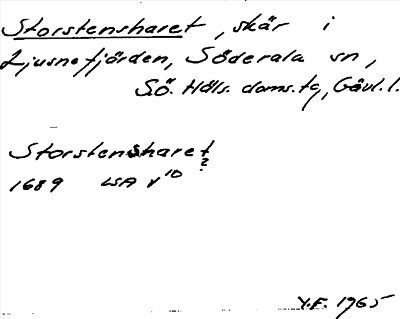 Storstensharet, skär i
Ljusnefjörden, Söderala sn,
Sö. Häls. doms.tg, Gävl. l.
Storstensharet
?
1689 LSA V 10
Y.F. 1965